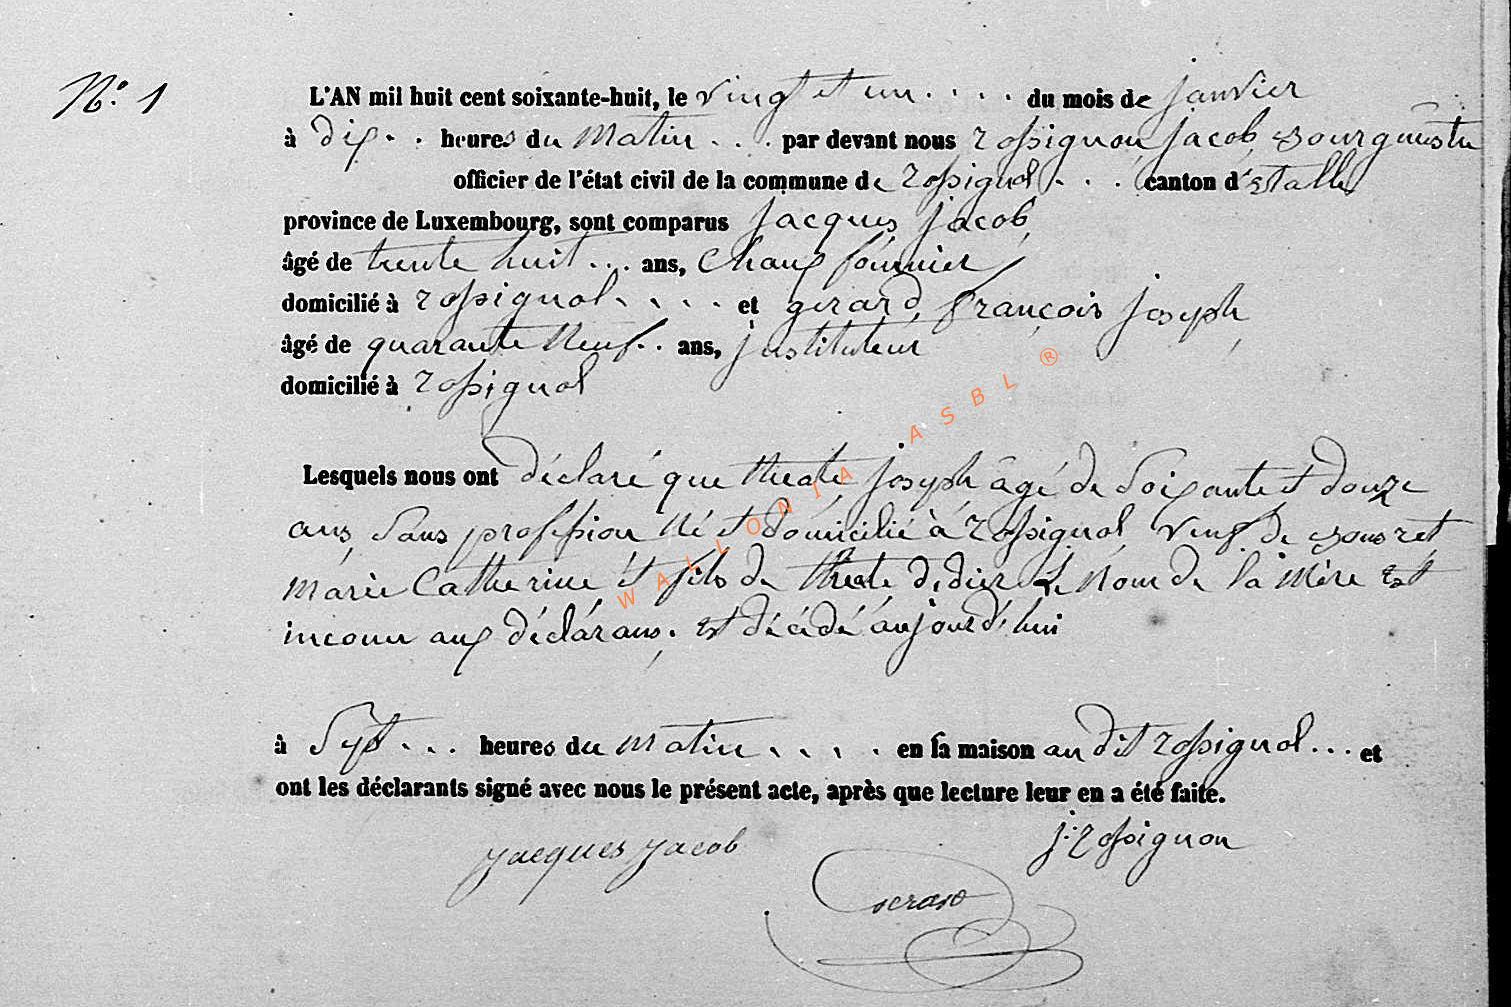 N.° 1
L'AN mil huit cent soixante-huit, le vingt et un . . . . du mois de janvier
à dix . . heures du matin . . . par devant nous rossignon jacob, bourguestre
officier de l'état civil de la commune de rossignol . . . canton d'Etalle
province de Luxembourg, sont comparus jacques jacob,
âgé de trente huit . . . ans, chauffournier,
domicilié à rossignol . . . . et gerard, françois joseph,
âgé de quarante neuf . . ans, justituteur
domicilié à rossignol
Lesquels nous ont déclaré que theate, joseph âgé de soixante et douze
ans, sans profession né et domicilié à rossignol, veuf de
marie Catherine, et fils de theate didier Le nom de la mère est
inconnu aux déclarans, est décédé aujourd'hui
à sept . . . heures du matin . . . . en sa maison au dit rossignol . . . et
ont les déclarants signé avec nous le présent acte, après que lecture leur en a été faite.
jacques jacob
j. rossignon
WALLONIA ASBL ®